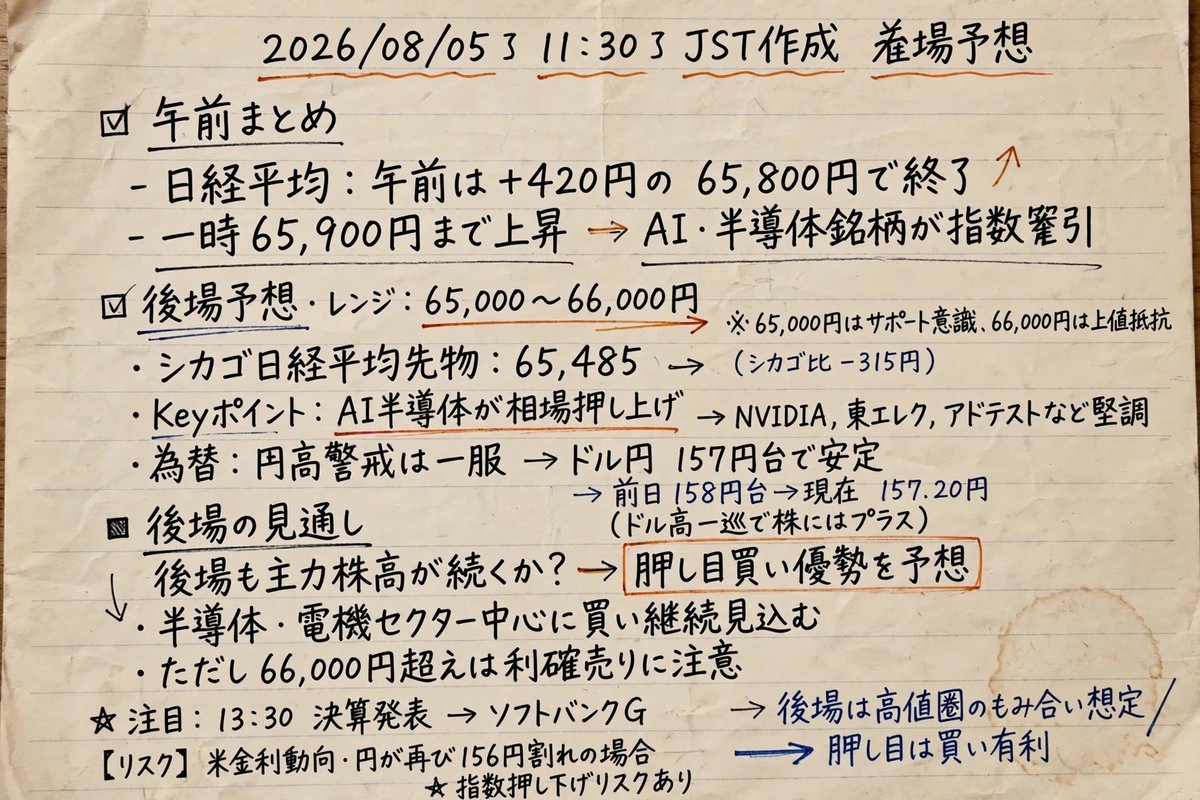 2026/08/05了 11:30了 JST作成 產場予想
☑ 午前まとめ
- 日経平均：午前は+420円の 65,800円で終了 ↗
- 一時65,900円まで上昇 → AI・半導体銘柄が指数引
☑ 後場予想・レンジ：65,000～66,000円
※65,000円はサポート意識、66,000円は上値抵抗
・シカゴ日経平均先物：65,485 → (シカゴ比-315円)
・Keyポイント：AI半導体が相場押し上げ → NVIDIA, 東エレク, アドテストなど堅調
・為替：円高警戒は一服 → ドル円 157円台で安定
→ 前日158円台→現在 157.20円
(ドル高一巡で株にはプラス)
■ 後場の見通し
後場も主力株高が続くか？→ 胛し目買い優勢を予想
↓・半導体・電機セクター中心に買い継続見込む
・ただし66,000円超えは利確売りに注意
☆ 注目：13:30 決算発表 → ソフトバンクG
→ 後場は高値圏のもみ合い想定/
→ 胛し目は買い有利
【リスク】米金利動向・円が再び156円割れの場合
☆ 指数押し下げリスクあり